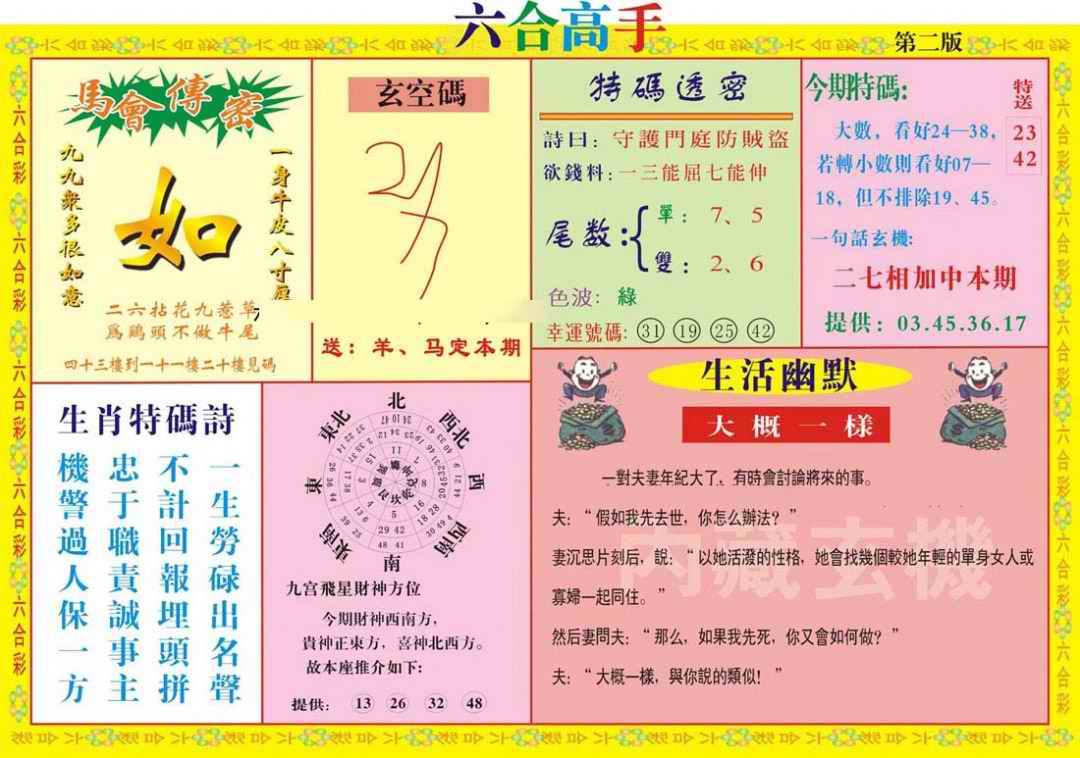 六合高手
第二版
馬會傳密
九九衆多很如意
如
一身牛皮八寸厚
二六拈花九惹草
爲鷄頭不做牛尾
四十三樓到一十一樓二十樓見碼
玄空碼
送：羊、马定本期
特碼透密
詩曰：守護門庭防賊盜
欲錢料：一三能屈七能伸
尾数：
單：7、5
雙：2、6
色波：綠
幸運號碼：31 19 25 42
今期特碼：
特送
23
42
大數，看好24—38，
若轉小數則看好07—
18，但不排除19、45。
一句話玄機：
二七相加中本期
提供：03.45.36.17
生肖特碼詩
一生勞碌出名聲
不計回報埋頭拼
忠于職責誠事主
機警過人保一方
北
東北
西北
東
西
東南
西南
南
九宫飛星財神方位
今期財神西南方，
貴神正東方，喜神北西方。
故本座推介如下：
提供：13 26 32 48
生活幽默
大概一樣
一對夫妻年紀大了，有時會討論將來的事。
夫：“假如我先去世，你怎么辦法？”
妻沉思片刻后，說：“以她活潑的性格，她會找幾個較她年輕的單身女人或
寡婦一起同住。”
然后妻問夫：“那么，如果我先死，你又會如何做？”
夫：“大概一樣，與你說的類似！”
内藏玄機
六合彩